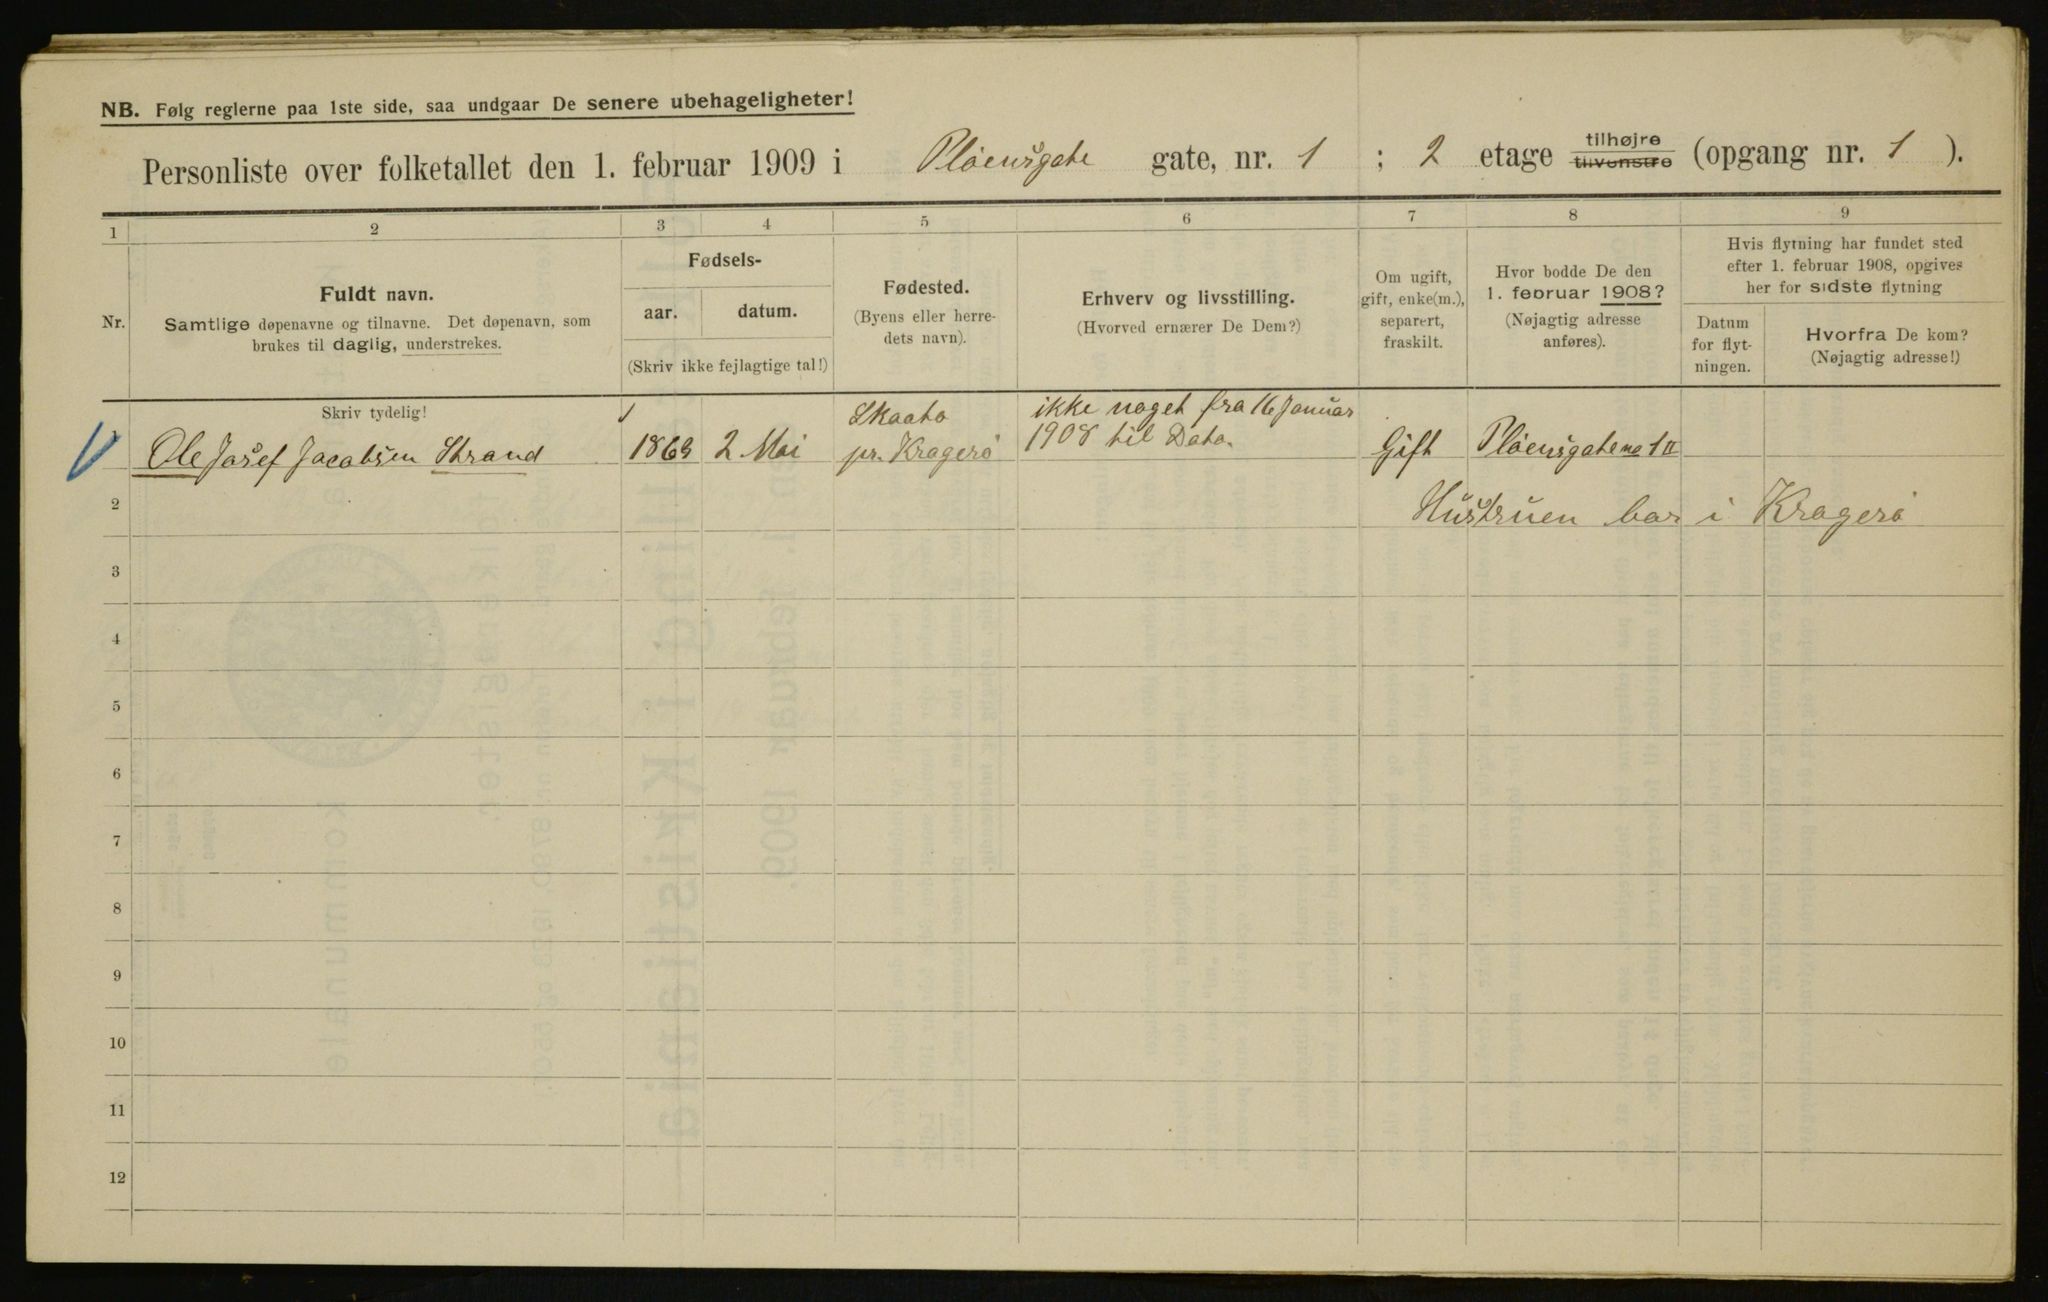 NB. Følg reglerne paa 1ste side, saa undgaar De senere ubehageligheter!
Personliste over folketallet den 1. februar 1909 i Pløensgate gate, nr. 1 ; 2 etage tilhøjre tilvenstre (opgang nr. 1 ).
1 2 3 4 5 6 7 8 9
Nr.
Fuldt navn.
Samtlige døpenavne og tilnavne. Det døpenavn, som
brukes til daglig, understrekes.
Fødsels-
aar. datum.
(Skriv ikke fejlagtige tal!)
Fødested.
(Byens eller herre-
dets navn).
Erhverv og livsstilling.
(Hvorved ernærer De Dem?)
Om ugift,
gift, enke(m.),
separert,
fraskilt.
Hvor bodde De den
1. februar 1908?
(Nøjagtig adresse
anføres).
Hvis flytning har fundet sted
efter 1. februar 1908, opgives
her for sidste flytning
Datum
for flyt-
ningen.
Hvorfra De kom?
(Nøjagtig adresse!)
Skriv tydelig!
Ole Josef Jacobsen Strand
1869
2 Mai
Skaatø
pr. Kragerø
ikke noget fra 16 Januar
1908 til Dato.
Gift
Pløensgate no 1 II
2
Hustruen bor i Kragerø
3
4
5
6
7
8
9
10
11
12